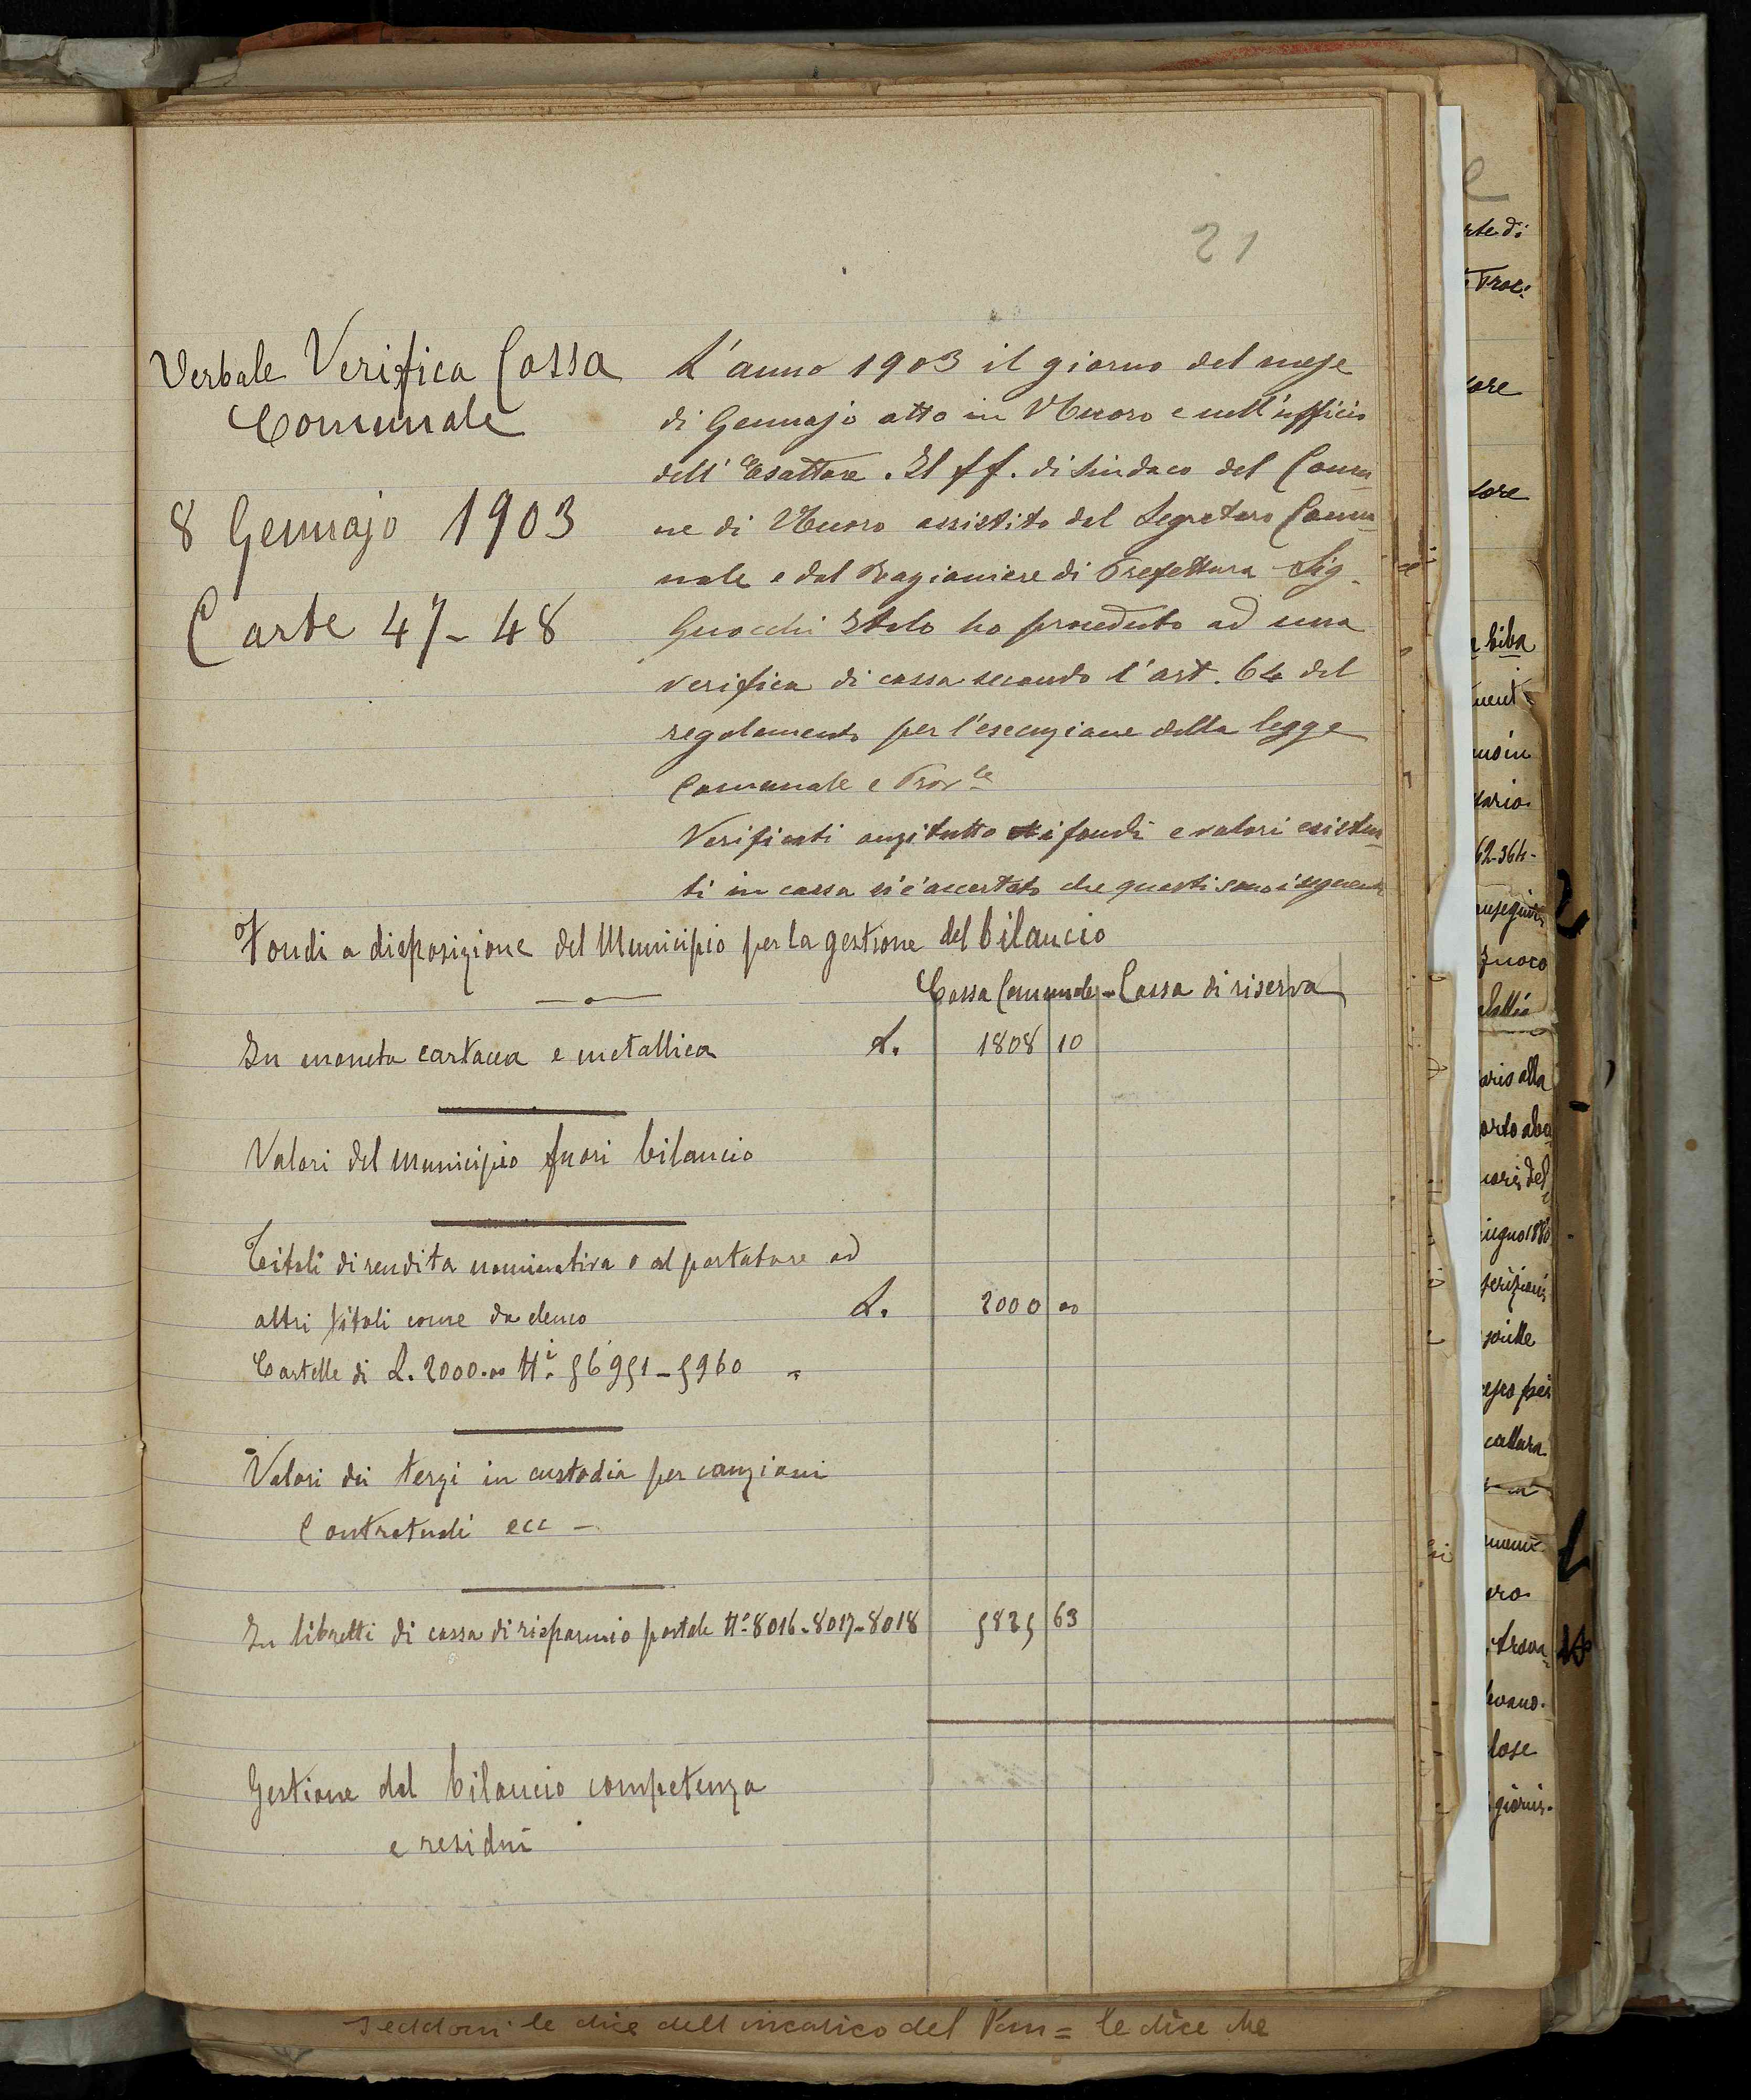 21
Verbale Verifica Cassa
Comunale
8 Gennajo 1903
Carte 47-48
L'anno 1903 il giorno del mese
di Gennajo atto in Nuoro e nell'ufficio
dell'Esattore. Il ff. di Sindaco del Comu
ne di Nuoro assistito dal Segretario Comu
nale e dal Ragioniere di Prefettura Sig.
Italo ho proceduto ad una
verifica di cassa secondo l'art. 64 del
regolamento per l'esecuzione della legge
Comunale e Prov.le
Verificati anzitutto i fondi e valori esisten
ti in cassa si è accertato che questi sono i seguenti
Fondi a disposizione del Municipio per la gestione del bilancio
Cassa Comunale - Cassa di riserva
In moneta cartacea e metallica L. 1808 10
Valori del Municipio fuori bilancio
Titoli di rendita nominativa o al portatore ad
altri titoli come da elenco L. 2000 00
Cartelle di L. 2000.00 N.i 56951-5960 "
Valori dei terzi in custodia per cauzioni
Contratuali ecc -
In libretti di cassa di risparmio postale N.o 8016-8017-8018 5825 63
Gestione del bilancio competenza
e residui
le dice dell'incarico del = le dice che